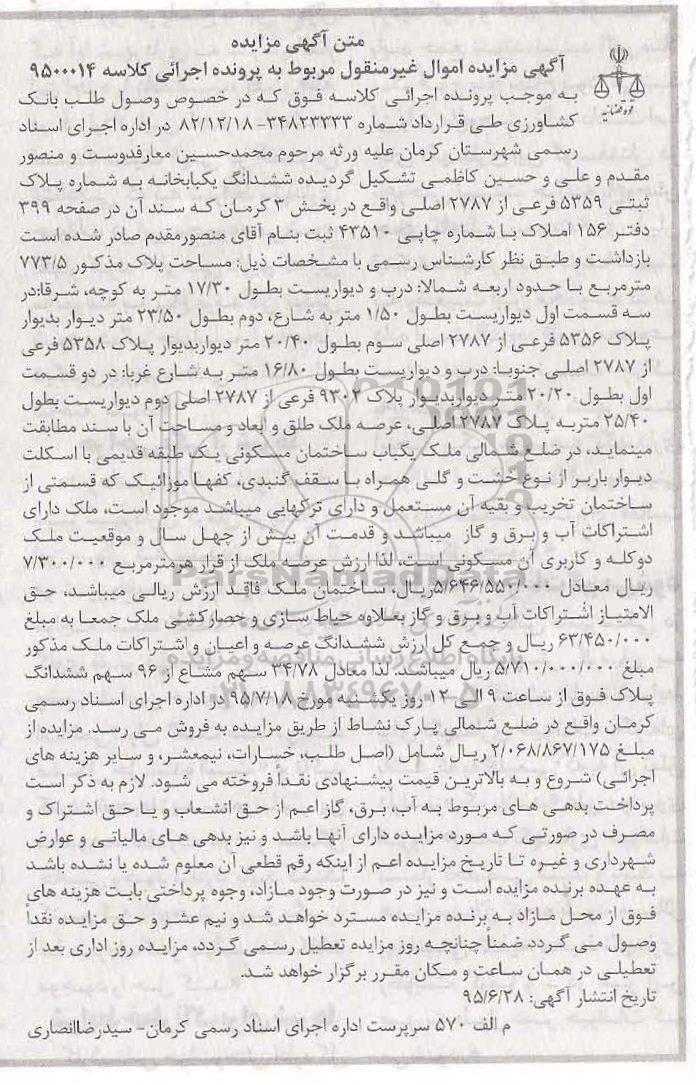 متن آگهی مزایده
آگهی مزایده اموال غیرمنقول مربوط به پرونده اجرائی کلاسه ۹۵۰۰۰۱۴
قوه قضائیه
به موجب پرونده اجرائی کلاسه فوق که در خصوص وصول طلب بانک
کشاورزی طی قرارداد شماره ۳۴۸۲۳۳۳۳- ۸۲/۱۲/۱۸ در اداره اجرای اسناد
رسمی شهرستان کرمان علیه ورثه مرحوم محمدحسین معارفدوست و منصور
مقدم و علی و حسین کاظمی تشکیل گردیده ششدانگ یکبابخانه به شماره پلاک
ثبتی ۵۳۵۹ فرعی از ۲۷۸۷ اصلی واقع در بخش ۳ کرمان که سند آن در صفحه ۳۹۹
دفتر ۱۵۶ املاک با شماره چاپی ۴۳۵۱۰ ثبت بنام آقای منصورمقدم صادر شده است
بازداشت و طبق نظر کارشناس رسمی با مشخصات ذیل: مساحت پلاک مذکور ۷۷۳/۵
مترمربع با حدود اربعه شمالا: درب و دیواریست بطول ۱۷/۳۰ متر به کوچه، شرقا:در
سه قسمت اول دیواریست بطول ۱/۵۰ متر به شارع، دوم بطول ۲۳/۵۰ متر دیوار بدیوار
پلاک ۵۳۵۶ فرعی از ۲۷۸۷ اصلی سوم بطول ۲۰/۴۰ متر دیواربدیوار پلاک ۵۳۵۸ فرعی
از ۲۷۸۷ اصلی جنوبا: درب و دیواریست بطول ۱۶/۸۰ متر به شارع غربا: در دو قسمت
اول بطول ۲۰/۲۰ متر دیواربدیوار پلاک ۹۳۰۲ فرعی از ۲۷۸۷ اصلی دوم دیواریست بطول
۲۵/۴۰ متربه پلاک ۲۷۸۷ اصلی، عرصه ملک طلق و ابعاد و مساحت آن با سند مطابقت
مینماید، در ضلع شمالی ملک یکباب ساختمان مسکونی یک طبقه قدیمی با اسکلت
دیوار باربر از نوع خشت و گلی همراه با سقف گنبدی، کفها موزائیک که قسمتی از
ساختمان تخریب و بقیه آن مستعمل و دارای ترکهایی میباشد موجود است، ملک دارای
اشتراکات آب و برق و گاز میباشد و قدمت آن بیش از چهل سال و موقعیت ملک
دوکله و کاربری آن مسکونی است، لذا ارزش عرصه ملک از قرار هرمترمربع ۷/۳۰۰/۰۰۰
ریال معادل ۵/۶۴۶/۵۵۰/۰۰۰ریال، ساختمان ملک فاقد ارزش ریالی میباشد، حق
الامتیاز اشتراکات آب و برق و گاز بعلاوه حیاط سازی و حصارکشی ملک جمعا به مبلغ
۶۳/۴۵۰/۰۰۰ ریال و جمع کل ارزش ششدانگ عرصه و اعیان و اشتراکات ملک مذکور
مبلغ ۵/۷۱۰/۰۰۰/۰۰۰ ریال میباشد. لذا معادل ۳۴/۷۸ سهم مشاع از ۹۶ سهم ششدانگ
پلاک فوق از ساعت ۹ الی ۱۲ روز یکشنبه مورخ ۹۵/۷/۱۸ در اداره اجرای اسناد رسمی
کرمان واقع در ضلع شمالی پارک نشاط از طریق مزایده به فروش می رسد. مزایده از
مبلغ ۲/۰۶۸/۸۶۷/۱۷۵ ریال شامل (اصل طلب، خسارات، نیمعشر، و سایر هزینه های
اجرائی) شروع و به بالاترین قیمت پیشنهادی نقداً فروخته می شود. لازم به ذکر است
پرداخت بدهی های مربوط به آب، برق، گاز اعم از حق انشعاب و یا حق اشتراک و
مصرف در صورتی که مورد مزایده دارای آنها باشد و نیز بدهی های مالیاتی و عوارض
شهرداری و غیره تا تاریخ مزایده اعم از اینکه رقم قطعی آن معلوم شده یا نشده باشد
به عهده برنده مزایده است و نیز در صورت وجود مازاد، وجوه پرداختی بابت هزینه های
فوق از محل مازاد به برنده مزایده مسترد خواهد شد و نیم عشر و حق مزایده نقداً
وصول می گردد ضمناً چنانچه روز مزایده تعطیل رسمی گردد، مزایده روز اداری بعد از
تعطیلی در همان ساعت و مکان مقرر برگزار خواهد شد.
تاریخ انتشار آگهی: ۹۵/۶/۲۸
م الف ۵۷۰ سرپرست اداره اجرای اسناد رسمی کرمان- سیدرضاانصاری